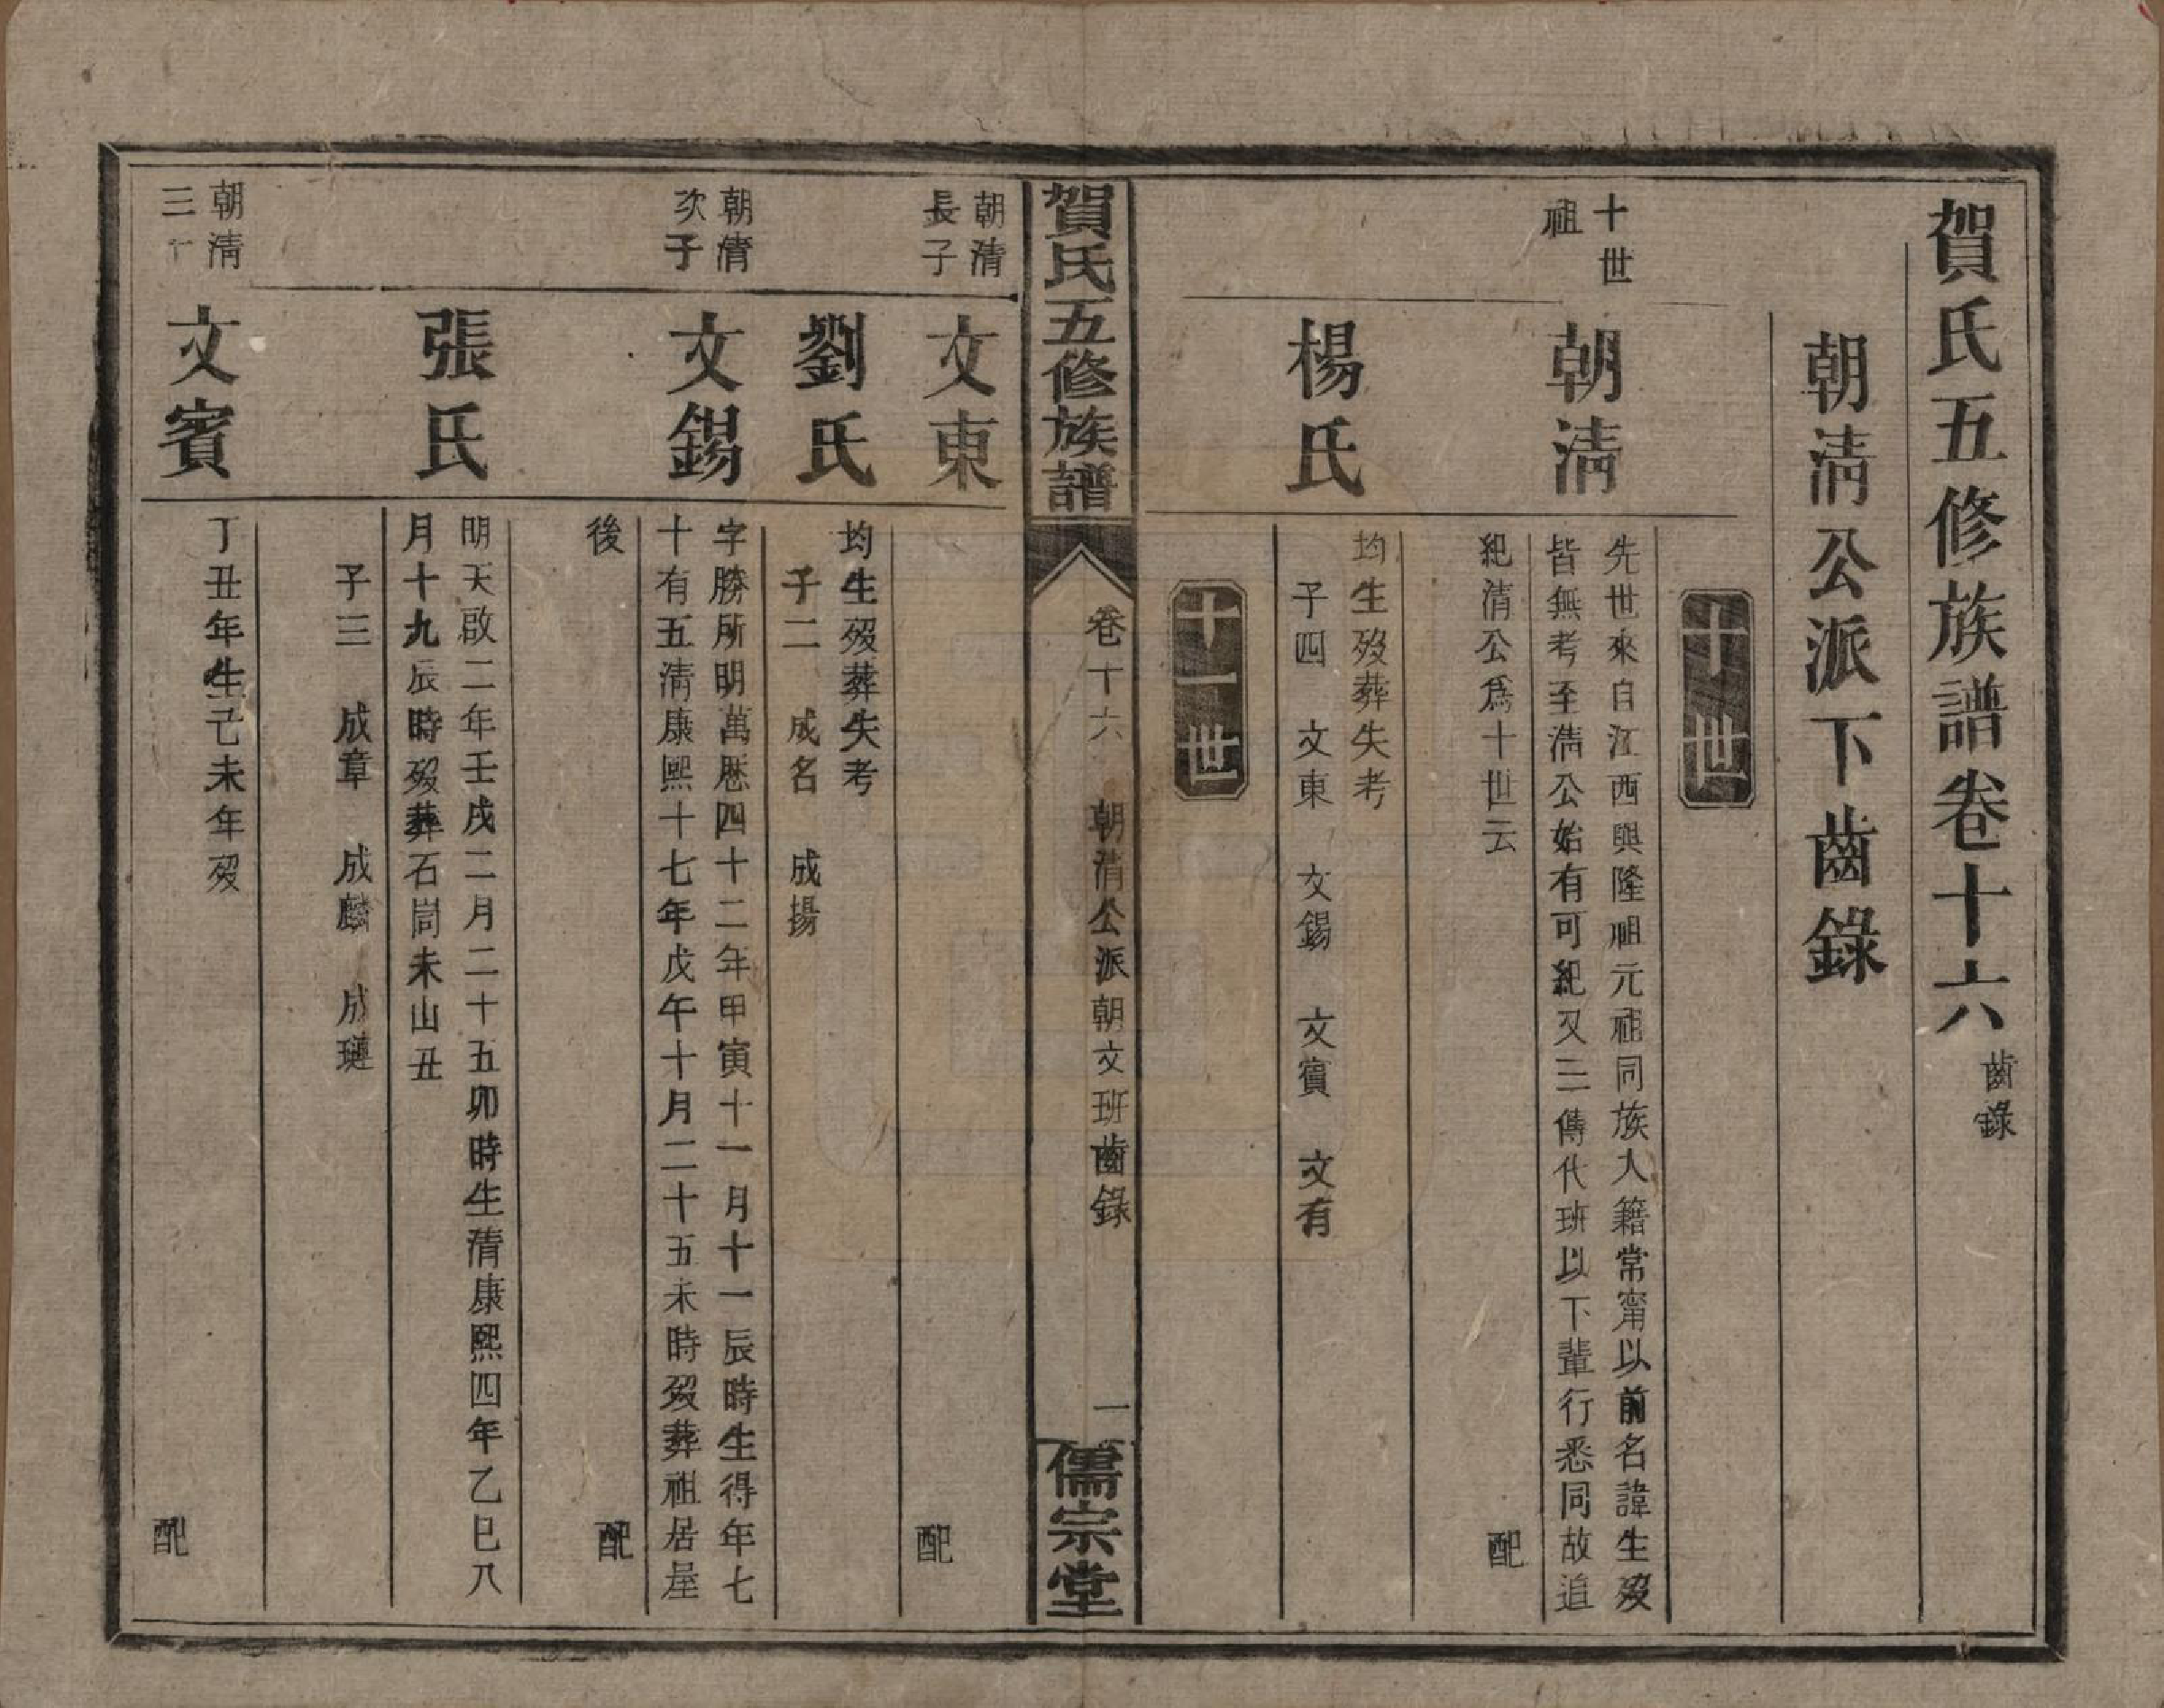 賀氏五修族譜卷十六 齒錄
朝清公派下齒錄
十世
十世
祖
朝清
先世來自江西興隆祖元祖同族人籍常甯以前名諱生歿
皆無考至清公始有可紀又三傳代班以下輩行悉同故追
紀清公爲十世云
配
楊氏
均生歿葬失考
子四 文東 文錫 文賓 文有
十一世
賀氏五修族譜
卷十六 朝清公派朝文班齒錄
一
儒宗堂
朝清
長子
文東
配
劉氏
均生歿葬失考
子二 成名 成揚
朝清
次子
文錫
字勝所明萬歷四十二年甲寅十一月十一辰時生得年七
十有五清康熙十七年戊午十月二十五未時歿葬祖居屋
後
配
張氏
明天啟二年壬戌二月二十五卯時生清康熙四年乙巳八
月十九辰時歿葬石崗未山丑
子三 成章 成麟 成璉
朝清
三
文賓
丁丑年生己未年歿
配